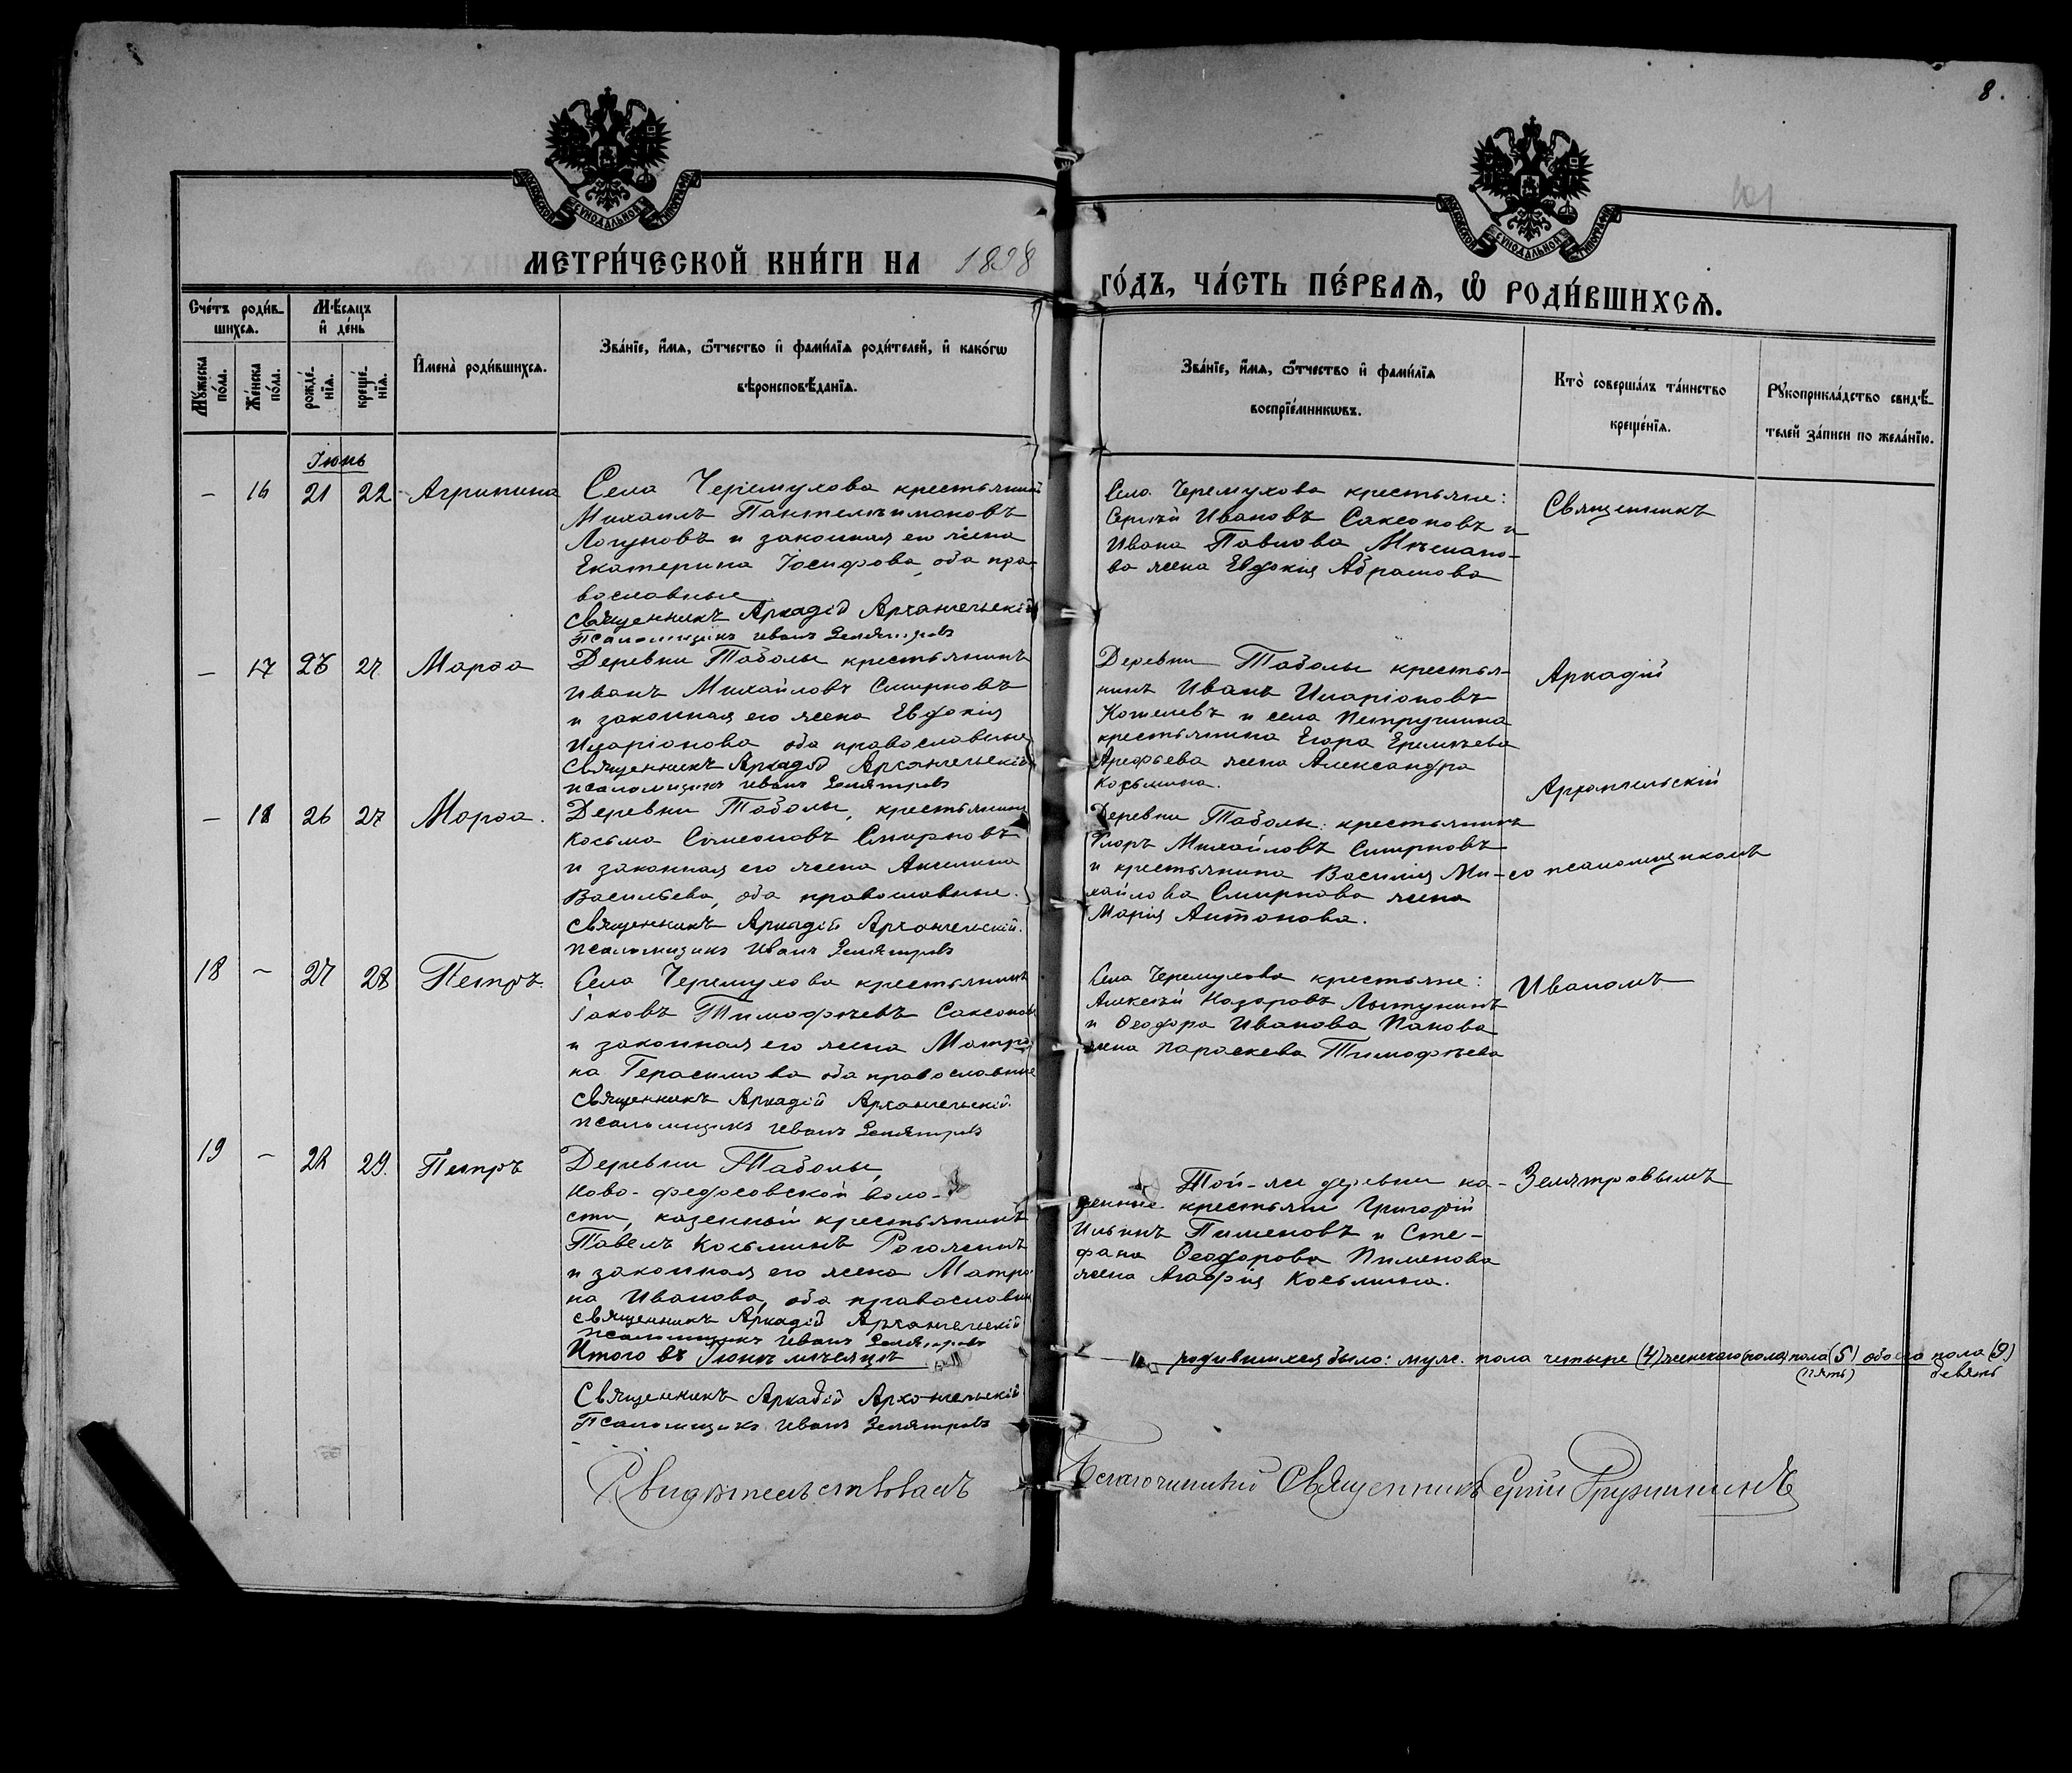 8.
МОСКОВСКОЙ СѴНОДАЛЬНОЙ ТИПОГРАФІИ
МОСКОВСКОЙ СѴНОДАЛЬНОЙ ТИПОГРАФІИ
МЕТРИ́ЧЕСКОЙ КНИ́ГИ НА 1898
ГО́ДЪ, ЧА́СТЬ ПЕ́РВАѦ, Ѡ҆ РОДИ́ВШИХСѦ.
Сче́тъ роди́в-
шихсѧ.
Мѣ́сѧцъ
и҆ де́нь
Мꙋ́жеска по́ла.
Же́нска по́ла.
рожде́-нїѧ.
креще́-нїѧ.
И҆мена̀ роди́вшихсѧ.
Зва́нїе, и҆́мѧ, ѻ҆́тчество и҆ фами́лїѧ роди́телей, и҆ како́гѡ
вѣроисповѣ́данїѧ.
Зва́нїе, и҆́мѧ, ѻ҆́тчество и҆ фами́лїѧ
воспрїе́мникѡвъ.
Кто̀ соверша́лъ та́инство
креще́нїѧ.
Рꙋкоприкла́дство свидѣ́-
телей за́писи по жела́нїю.
Іюнь
– 16 21 22 Агрипина
Села Черемухова крестьянинъ
Михаилъ Пантелеимоновъ
Логуновъ и законная его жена
Екатерина Іосифова, оба пра-
вославные
Священникъ Аркадій Архангельскій
Псаломщикъ Иванъ Землтровъ
Села Черемухова крестьяне:
Сергѣй Ивановъ Саксоновъ и
Ивана Павлова
ва жена Евдокія Абрамова
Священникъ
– 17 26 27 Марѳа
Деревни Таболы крестьянинъ
Иванъ Михайловъ Смирновъ
и законная его жена Евдокія
Иларіонова оба православные
Священникъ Аркадій Архангельскій
псаломщикъ Иванъ
Деревни Таболы крестья-
нинъ Иванъ Иларіоновъ
Кошелевъ и села Петрушина
крестьянина Егора Еремѣева
Арефьева жена Александра
Косьмина.
Аркадій
Архангельскій
– 18 26 27 Марѳа.
Деревни Таболы, крестьянинъ
Косьма Симеоновъ Смирновъ
и законная его жена Акилина
Васильева, оба православные.
Священникъ Аркадій Архангельскій.
псаломщикъ Иванъ
Деревни Таболы: крестьянинъ
Флоръ Михайловъ Смирновъ
и крестьянина Василія Ми-
хайлова Смирнова жена
Марія Антонова.
со псаломщикомъ
18 – 27 28 Петръ.
Села Черемухова крестьянинъ
Іаковъ Тимофѣевъ Саксоновъ
и законная его жена Матро-
на Герасимова оба православные
Священникъ Аркадій Архангельскій.
псаломщикъ Иванъ
Села Черемухова крестьяне:
Алексѣй Назаровъ
и Ѳеодора Иванова Панова
жена Параскева Тимофѣева
Иваномъ
19 – 28 29. Петръ
Деревни Таболы,
Ново-федосовской воло-
сти, казенный крестьянинъ
Павелъ Косьминъ Рогожинъ
и законная его жена Матро-
на Иванова, оба православн
священникъ Аркадій Архангельскій
псаломщикъ Иванъ
Той-же деревни ка-
зенные крестьяне Григорій
Ильинъ Пименовъ и Сте-
фана Ѳеодорова Пименова
жена Агафія Косьмина.
Землтровымъ
Итого въ Іюнѣ мѣсяцѣ
родившихся было: муж. пола четыре (4) женскаго (пола) пола (5) обоего пола (9)
(пять) девять
Священникъ Аркадій Архангельскій
Псаломщикъ Иванъ
Свидѣтельствовалъ
Благочинный Священникъ Сергій Гружининъ